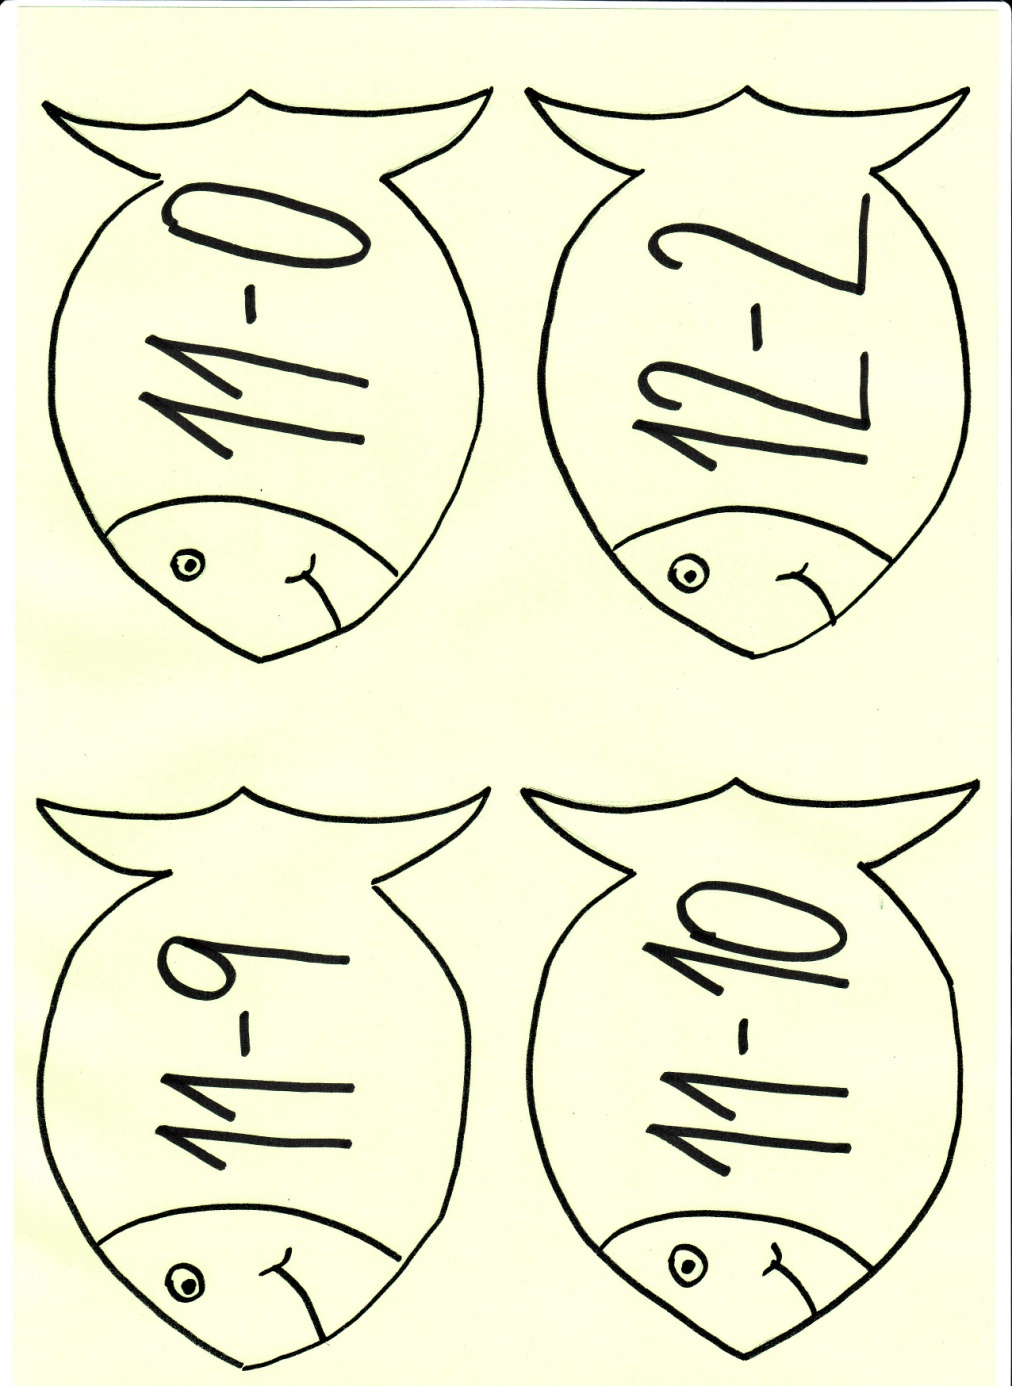 11-0
12-2
11-9
11-10